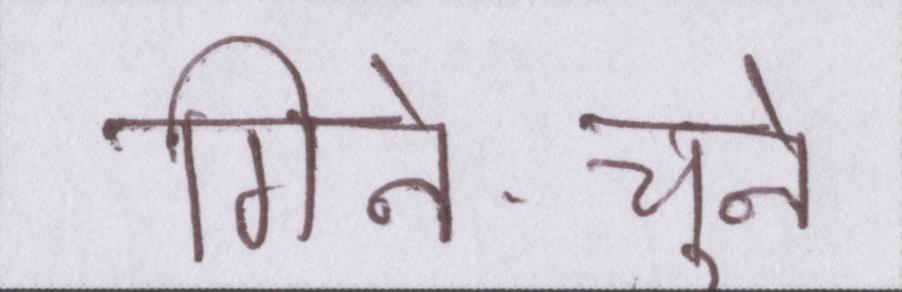 गिने-चुने